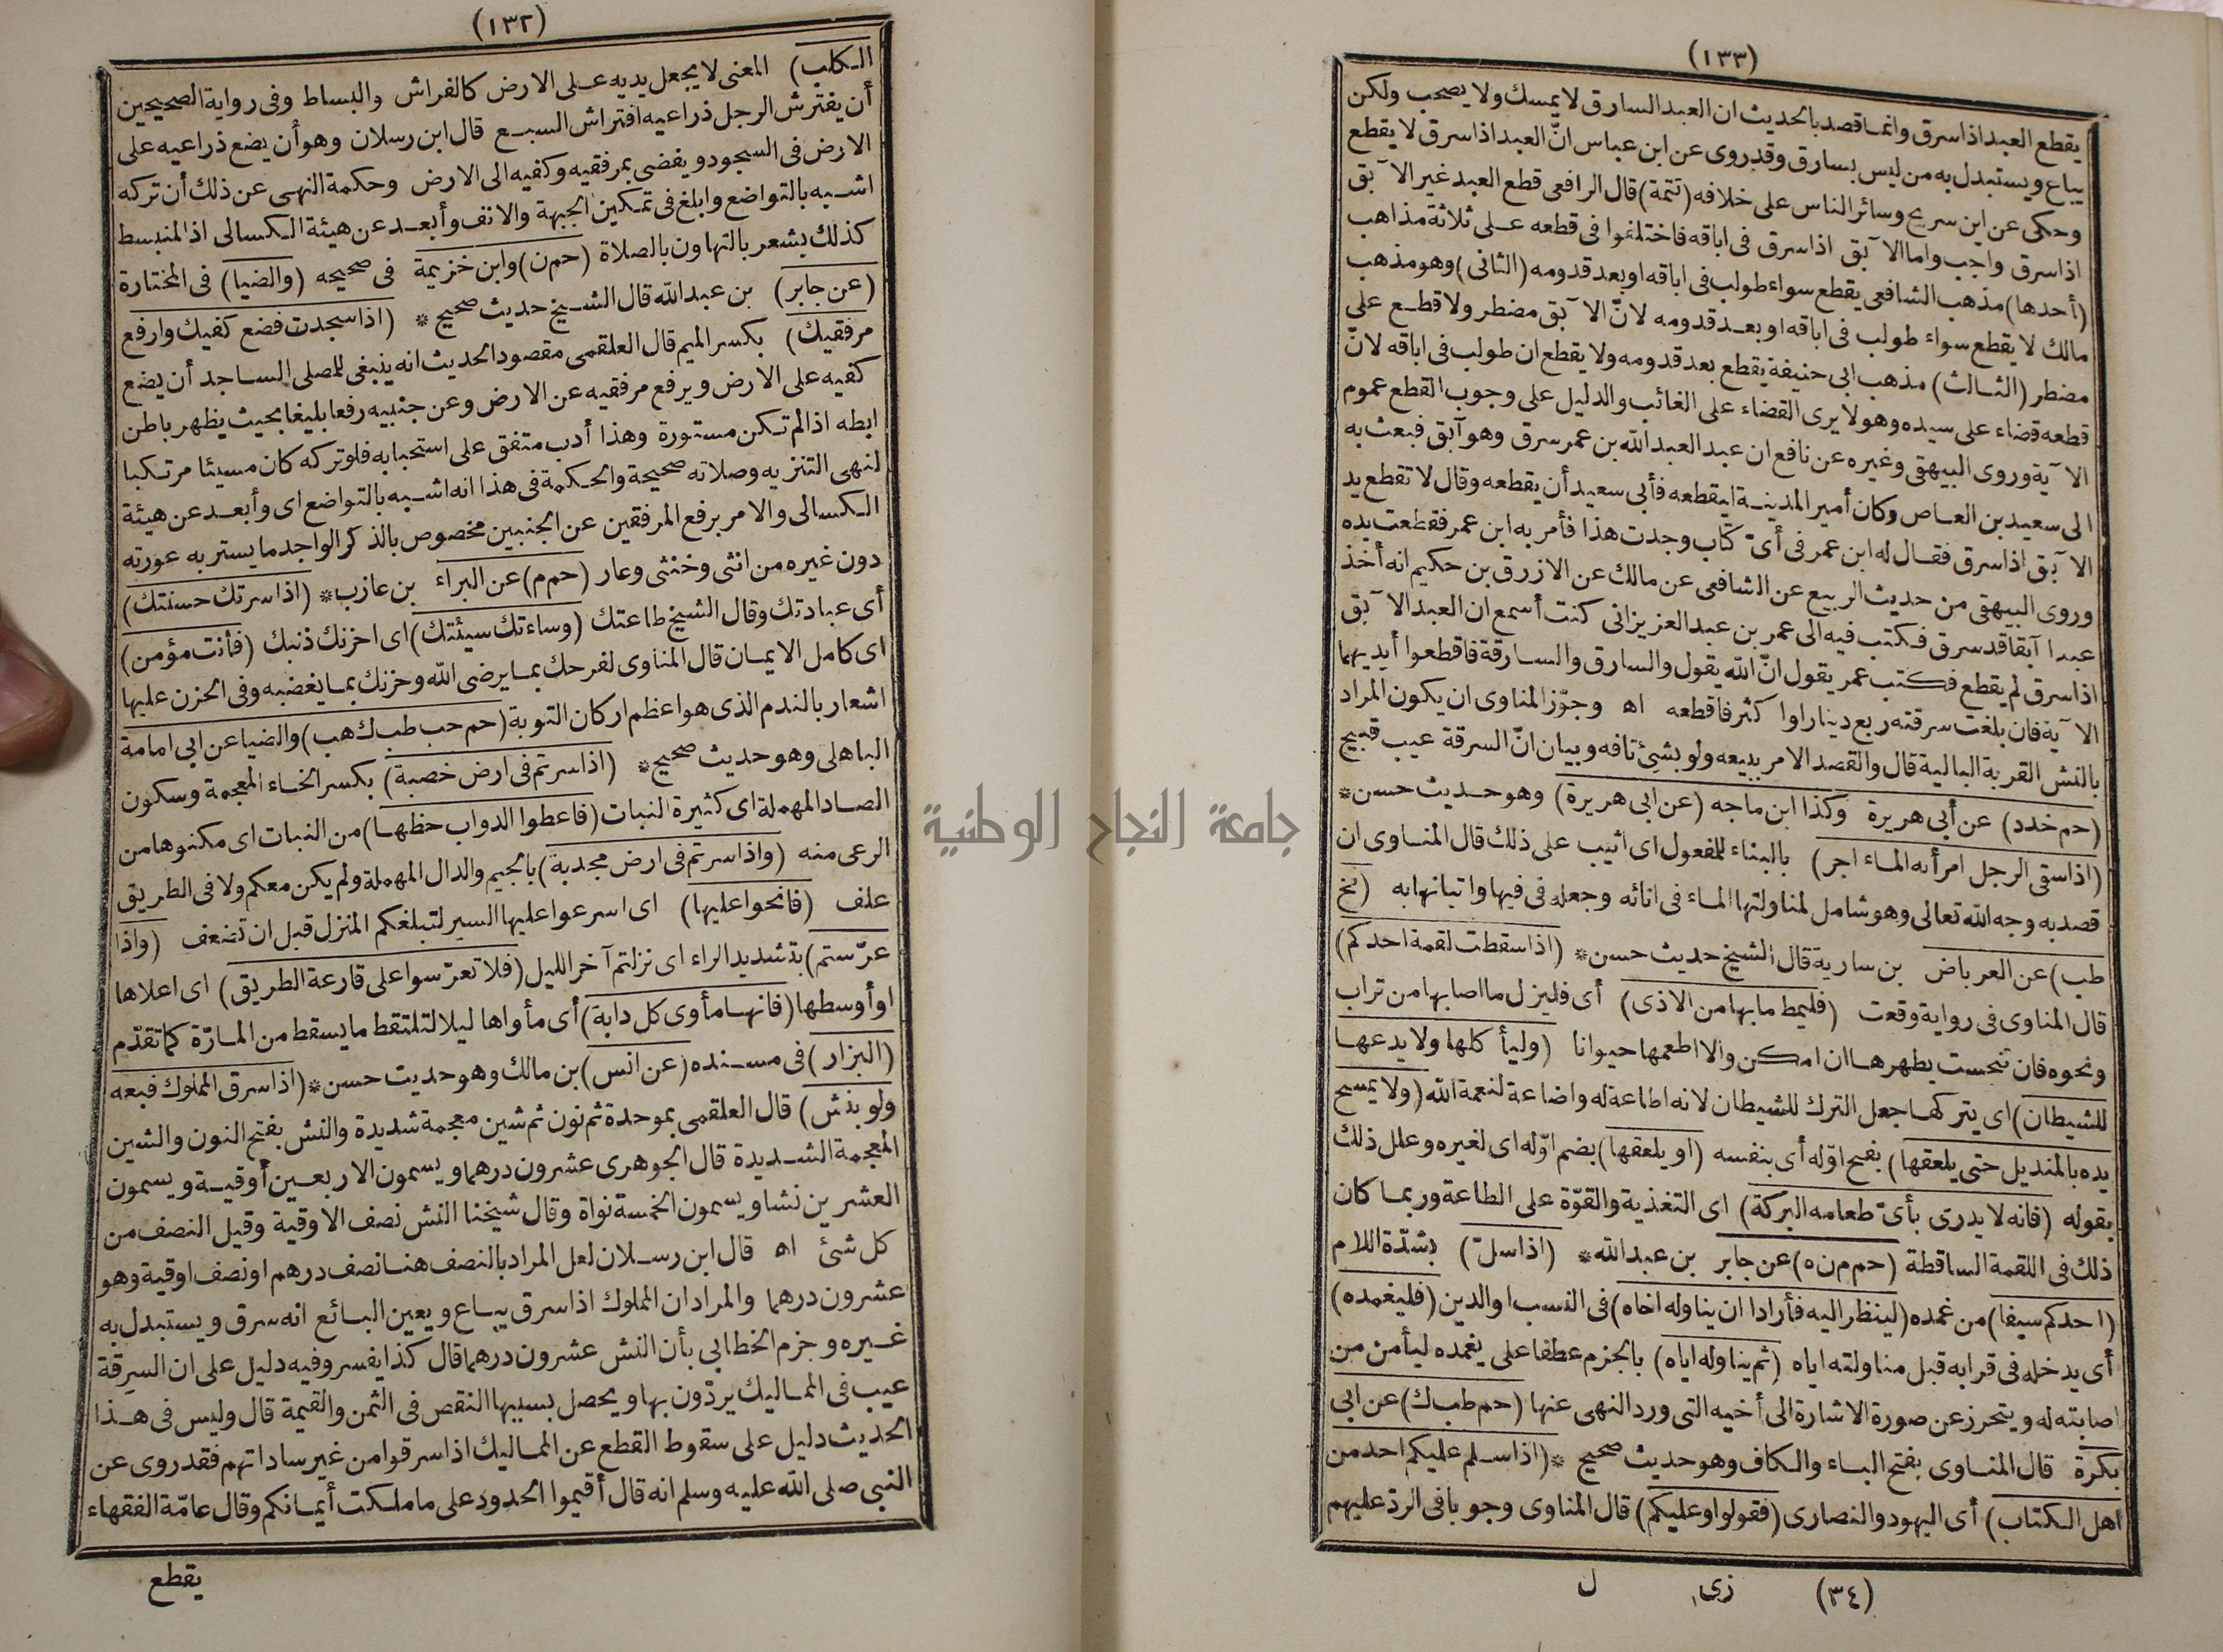 (١٣٢)
الكلب) المعنى لا يجعل يديه على الارض كالفراش والبساط وفى رواية الصحيحين
أن يفترش الرجل ذراعيه افتراش السبع قال ابن رسلان وهو أن يضع ذراعيه على
الارض فى السجود ويفضى بمرفقيه وكفيه الى الارض وحكمة النهى عن ذلك أن تركه
اشبه بالتواضع وابلغ فى تمكين الجبهة والانف وأبعد عن هيئة الكسالى اذ المنبسط
كذلك يشعر بالتهاون بالصلاة (حم ن) وابن خزيمة فى صحيحه (والضيا) فى المختارة
(عن جابر) بن عبد الله قال الشيخ حديث صحيح * (اذا سجدت فضع كفيك وارفع
مرفقيك) بكسر الميم قال العلقمى مقصود الحديث انه ينبغى للمصلى الساجد أن يضع
كفيه على الارض ويرفع مرفقيه عن الارض وعن جنبيه رفعا بليغا بحيث يظهر باطن
ابطه اذا لم تكن مستورة وهذا أدب متفق على استحبابه فلو تركه كان مسيئا مرتكبا
لنهى التنزيه وصلاته صحيحة والحكمة فى هذا انه اشبه بالتواضع اى وأبعد عن هيئة
الكسالى والامر برفع المرفقين عن الجنبين مخصوص بالذكر الواجد ما يستر به عورته
دون غيره من انثى وخنثى وعار (حم م) عن البراء بن عازب * (اذا سرتك حسنتك)
أى عبادتك وقال الشيخ طاعتك (وساءتك سيئتك) اى احزنك ذنبك (فأنت مؤمن)
اى كامل الايمان قال المناوى لفرحك بما يرضى الله وحزنك بما يغضبه وفى الحزن عليها
اشعار بالندم الذى هو اعظم اركان التوبة (حم حب طب ك هب) والضيا عن ابى امامة
الباهلى وهو حديث صحيح * (اذا سرتم فى ارض خصبة) بكسر الخاء المعجمة وسكون
الصاد المهملة اى كثيرة النبات (فاعطوا الدواب حظها) من النبات اى مكنوها من
الرعى منه (واذا سرتم فى ارض مجدبة) بالجيم والدال المهملة ولم يكن معكم ولا فى الطريق
علف (فانحوا عليها) اى اسرعوا عليها السير لتبلغكم المنزل قبل ان تضعف (واذا
عرّستم) بتشديد الراء اى نزلتم آخر الليل (فلا تعرّسوا على قارعة الطريق) اى اعلاها
او أوسطها (فانها مأوى كل دابة) أى مأواها ليلا لتلتقط ما يسقط من المارّة كما تقدّم
(البزار) فى مسنده (عن انس) بن مالك وهو حديث حسن * (اذا سرق المملوك فبعه
ولو بنش) قال العلقمى بموحدة ثم نون ثم شين معجمة شديدة والنش بفتح النون والشين
المعجمة الشديدة قال الجوهرى عشرون درهما ويسمون الاربعين أوقية ويسمون
العشرين نشا ويسمون الخمسة نواة وقال شيخنا النش نصف الاوقية وقيل النصف من
كل شئ اه قال ابن رسلان لعل المراد بالنصف هنا نصف درهم او نصف اوقية وهو
عشرون درهما والمراد ان المملوك اذا سرق يباع ويعين البائع انه سرق ويستبدل به
غيره وجزم الخطابى بأن النش عشرون درهما قال كذا يفسر وفيه دليل على ان السرقة
عيب فى المماليك يردّون بها ويحصل بسببها النقص فى الثمن والقيمة قال وليس فى هذا
الحديث دليل على سقوط القطع عن المماليك اذا سرقوا من غير ساداتهم فقد روى عن
النبى صلى الله عليه وسلم انه قال أقيموا الحدود على ما ملكت أيمانكم وقال عامّة الفقهاء
يقطع
(١٣٣)
يقطع العبد اذا سرق وانما قصد بالحديث ان العبد السارق لا يمسك ولا يصحب ولكن
يباع ويستبدل به من ليس بسارق وقد روى عن ابن عباس انّ العبد اذا سرق لا يقطع
وحكى عن ابن سريج وسائر الناس على خلافه (تتمة) قال الرافعى قطع العبد غير الآبق
اذا سرق واجب واما الآبق اذا سرق فى اباقه فاختلفوا فى قطعه على ثلاثة مذاهب
(أحدها) مذهب الشافعى يقطع سواء طولب فى اباقه او بعد قدومه (الثانى) وهو مذهب
مالك لا يقطع سواء طولب فى اباقه او بعد قدومه لانّ الآبق مضطر ولا قطع على
مضطر (الثالث) مذهب ابى حنيفة يقطع بعد قدومه ولا يقطع ان طولب فى اباقه لانّ
قطعه قضاء على سيده وهو لا يرى القضاء على الغائب والدليل على وجوب القطع عموم
الآية وروى البيهقى وغيره عن نافع ان عبد العبد الله بن عمر سرق وهو آبق فبعث به
الى سعيد بن العاص وكان أمير المدينة ليقطعه فأبى سعيد أن يقطعه وقال لا تقطع يد
الآبق اذا سرق فقال له ابن عمر فى أىّ كتاب وجدت هذا فأمر به ابن عمر فقطعت يده
وروى البيهقى من حديث الربيع عن الشافعى عن مالك عن الازرق بن حكيم انه أخذ
عبدا آبقا قد سرق فكتب فيه الى عمر بن عبد العزيز انى كنت أسمع ان العبد الآبق
اذا سرق لم يقطع فكتب عمر يقول انّ الله يقول والسارق والسارقة فاقطعوا أيديهما
الآية فان بلغت سرقته ربع دينار اوا كثر فاقطعه اه وجوّز المناوى ان يكون المراد
بالنش القربة البالية قال والقصد الامر ببيعه ولو بشئ تافه وبيان انّ السرقة عيب قبيح
(حم خدد) عن أبى هريرة وكذا ابن ماجه (عن ابى هريرة) وهو حديث حسن *
(اذا سقى الرجل امرأته الماء اجر) بالبناء للمفعول اى اثيب على ذلك قال المناوى ان
قصد به وجه الله تعالى وهو شامل لمناولتها الماء فى انائه وجعله فى فيها واتيانها به (تخ
طب) عن العرباض بن سارية قال الشيخ حديث حسن * (اذا سقطت لقمة احدكم)
قال المناوى فى رواية وقعت (فليمط ما بها من الاذى) أى فليزل ما اصابها من تراب
ونحوه فان تنجست يطهرها ان امكن والا اطعمها حيوانا (وليأكلها ولا يدعها
للشيطان) اى يتركها جعل الترك للشيطان لانه اطاعة له واضاعة لنعمة الله (ولا يمسح
يده بالمنديل حتى يلعقها) بفتح اوّله أى بنفسه (او يلعقها) بضم اوّله اى لغيره وعلل ذلك
بقوله (فانه لا يدرى بأىّ طعامه البركة) اى التغذية والقوّة على الطاعة وربما كان
ذلك فى اللقمة الساقطة (حم م ن ه) عن جابر بن عبد الله * (اذا سلّ) بشدّة اللام
(احدكم سيفا) من غمده (لينظر اليه فأرادا ان يناوله اخاه) فى النسب او الدين (فليغمده)
أى يدخله فى قرابه قبل مناولته اياه (ثم يناوله اياه) بالجزم عطفا على يغمده ليأمن من
اصابته له ويتحرز عن صورة الاشارة الى أخيه التى ورد النهى عنها (حم طب ك) عن ابى
بكرة قال المناوى بفتح الباء والكاف وهو حديث صحيح * (اذا سلم عليكم احد من
اهل الكتاب) أى اليهود والنصارى (فقولوا وعليكم) قال المناوى وجوبا فى الردّ عليهم
(٣٤) زى ل
جامعة النجاح الوطنية